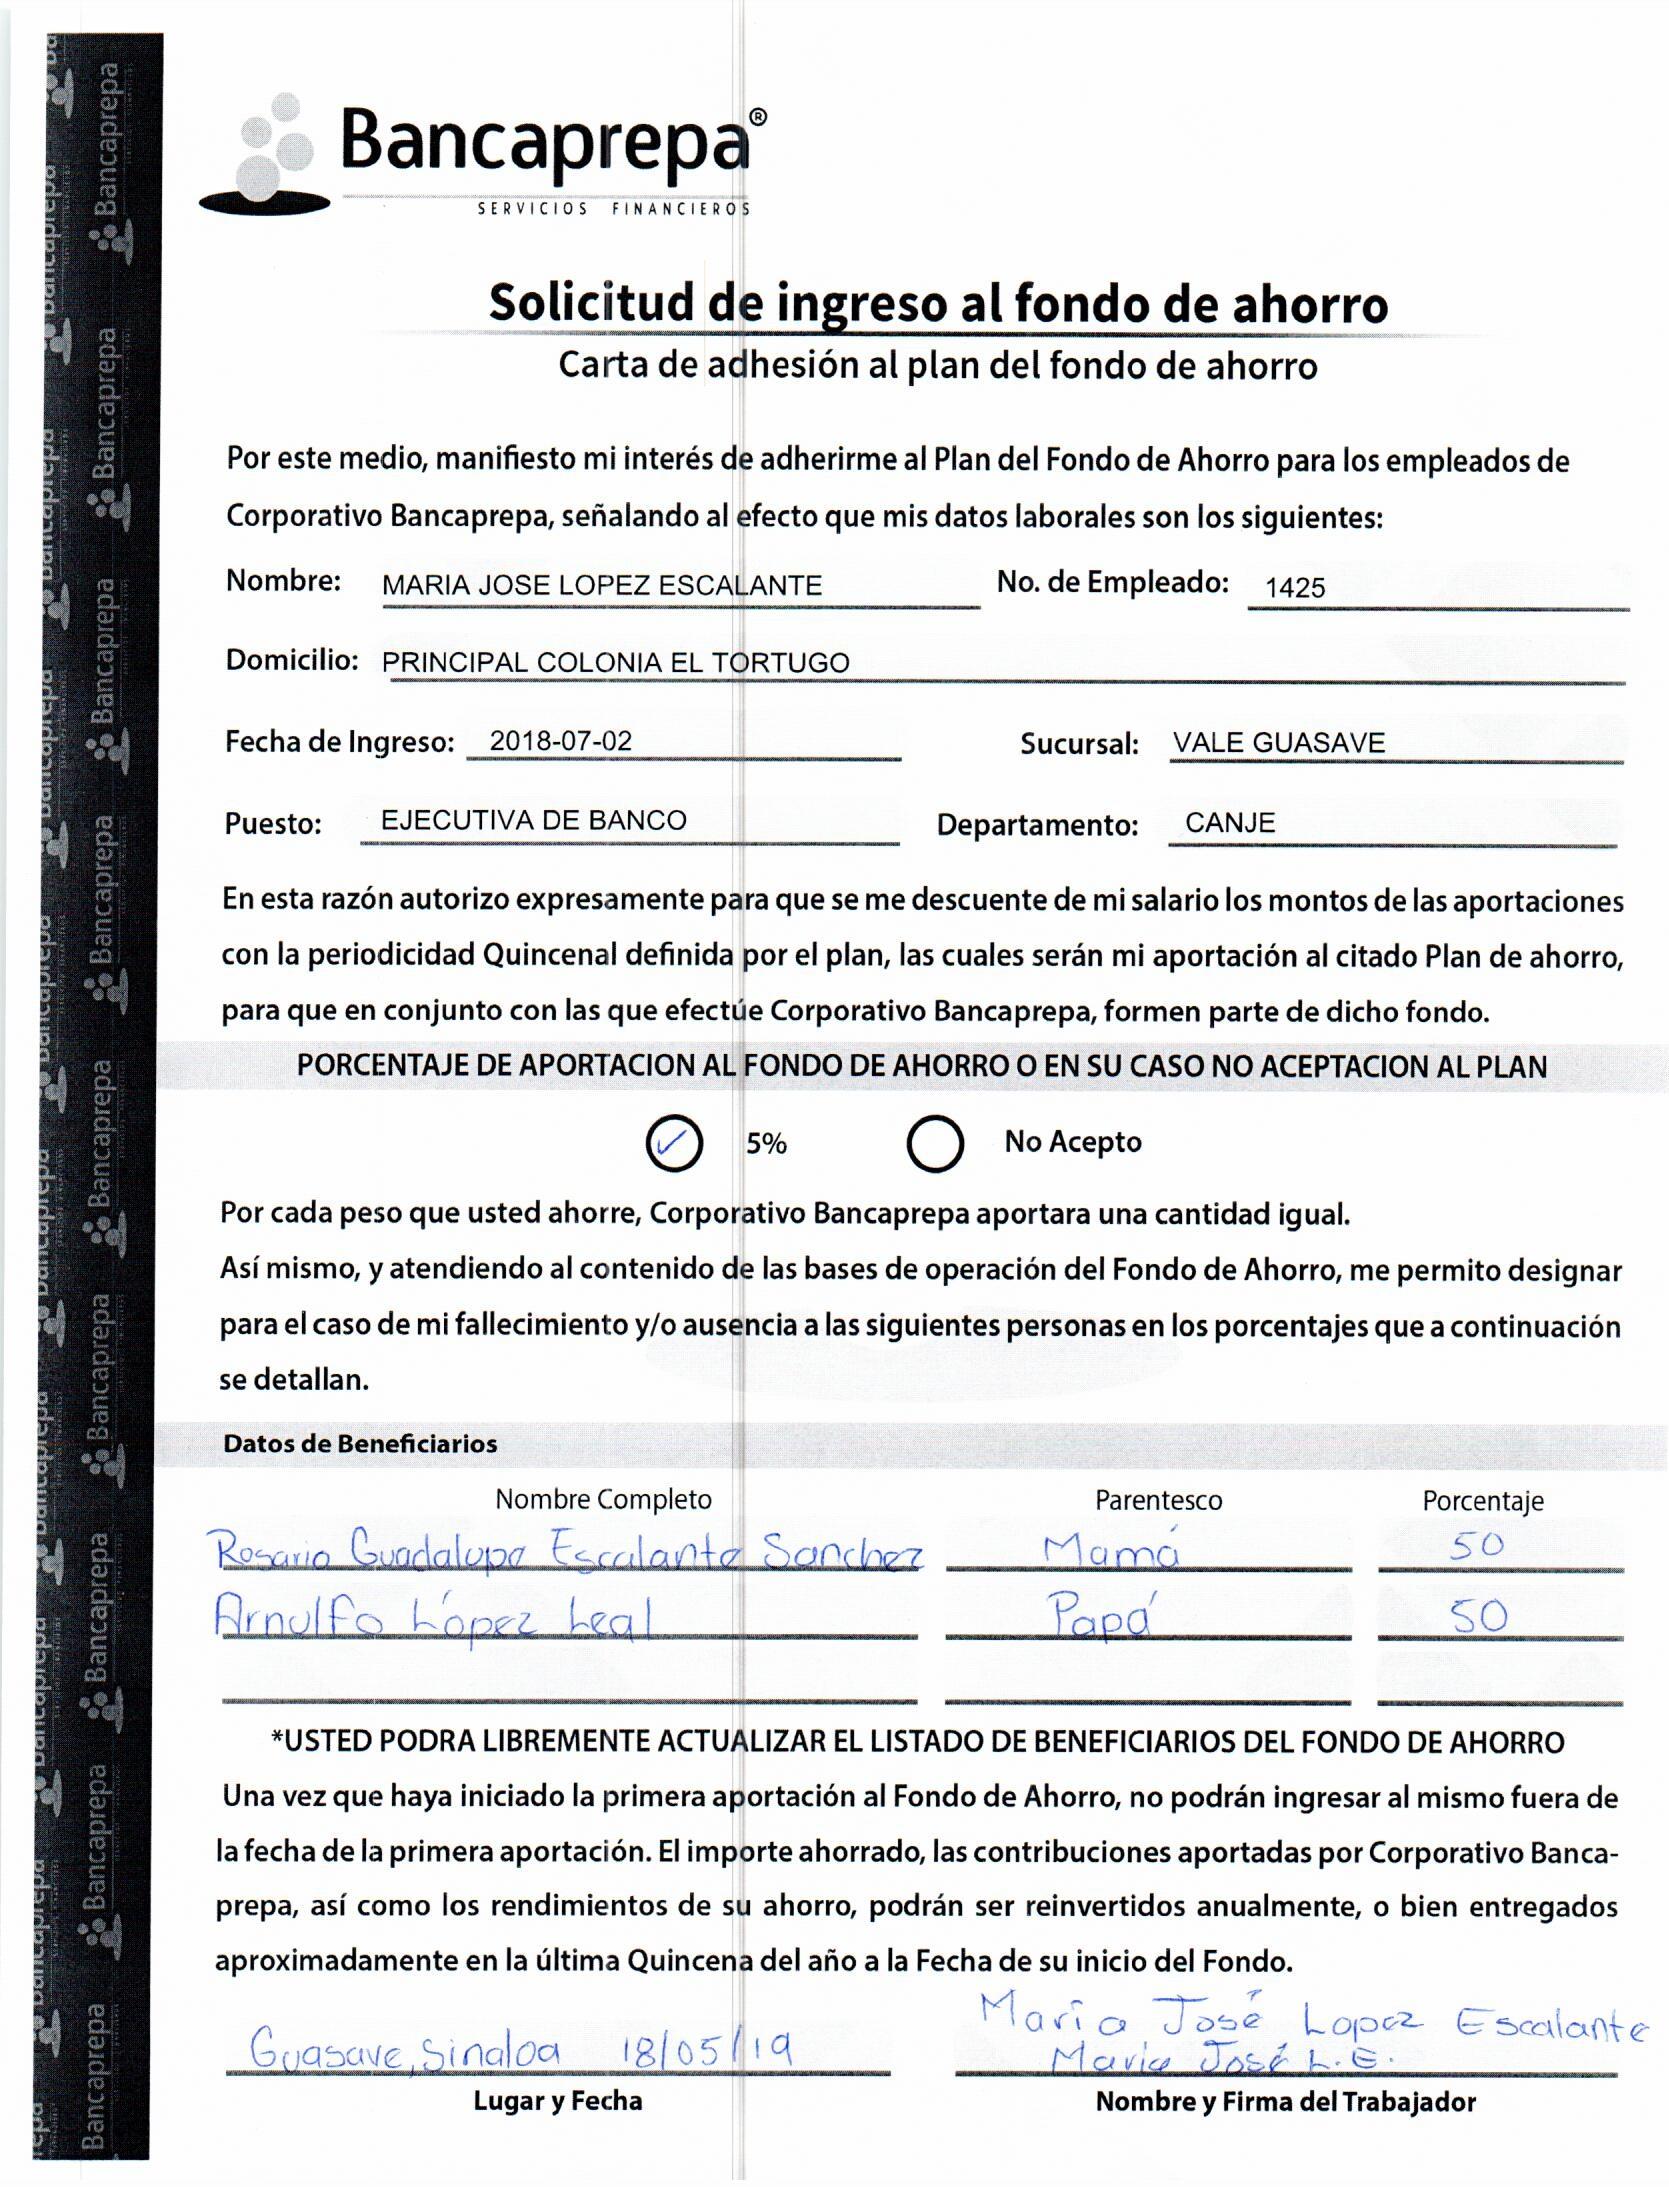 Bancaprepa®
SERVICIOS FINANCIEROS
Solicitud de ingreso al fondo de ahorro
Carta de adhesión al plan del fondo de ahorro
Por este medo, manifiesto mi interés de adherirme al Plan del Fondo de Ahorro para los empleados de
Corporativo Bancaprepa, señalando al efecto que mis datos laborales son los siguientes:
Nombre: MARIA JOSE LOPEZ ESCALANTE No. de Empleado: 1425
Domicilio: PRINCIPAL COLONIA EL TORTUGO
Fecha de Ingreso: 2018-07-02 Sucursal: VALE GUASAVE
Puesto: EJECUTIVA DE BANCO Departamento: CANJE
En esta razón autorizo expresamente para que se me descuente de mi salario los montos de las aportaciones
con la periodicidad Quincenal definida por el plan, las cuales serán mi aportación al citado Plan de ahorro,
para que en conjunto con las que efectúe Corporativo Bancaprepa, formen parte de dicho fondo.
PORCENTAJE DE APORTACION AL FONDO DE AHORRO O EN SU CASO NO ACEPTACION AL PLAN
✓ 5% No Acepto
Por cada peso que usted ahorre, Corporativo Bancaprepa aportara una cantidad igual.
Así mismo, y atendiendo al contenido de las bases de operación del Fondo de Ahorro, me permito designar
para el caso de mi fallecimiento y/o ausencia a las siguientes personas en los porcentajes que a continuación
se detallan.
Datos de Beneficiarios
Nombre Completo Parentesco Porcentaje
Rosario Guadalupe Escalante Sanchez Mamá 50
Arnulfo López Leal Papá 50
*USTED PODRA LIBREMENTE ACTUALIZAR EL LISTADO DE BENEFICIARIOS DEL FONDO DE AHORRO
Una vez que haya iniciado la primera aportación al Fondo de Ahorro, no podrán ingresar al mismo fuera de
la fecha de la primera aportación. El importe ahorrado, las contribuciones aportadas por Corporativo Banca-
prepa, así como los rendimientos de su ahorro, podrán ser reinvertidos anualmente, o bien entregados
aproximadamente en la última Quincena del año a la Fecha de su inicio del Fondo.
María José Lopez Escalante
Guasave, Sinaloa 18/05/19 María José L.E.
Lugar y Fecha Nombre y Firma del Trabajador